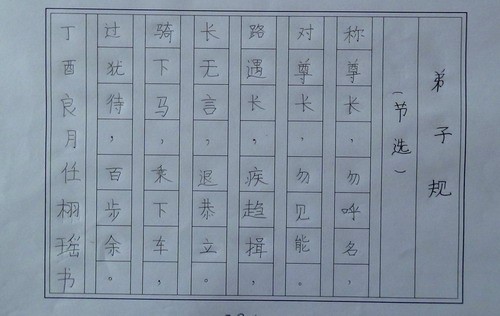 弟子规
(节选)
称尊长,勿呼名,
对尊长,勿见能。
路遇长,疾趋揖
长无言,退恭立。
骑下马,乘下车,
过犹待,百步余。
丁酉良月任栩瑶书